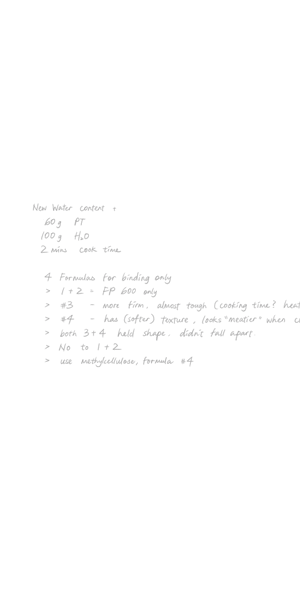 New Water content +
60g PT
100g H2O
2 mins cook time
4 Formulas for binding only
> 1+2 - FP 600 only
> #3 - more firm. almost tough (cooking time? heat
> #4 - has (softer) texture, looks "meatier" when
> both 3+4 held shape. didn't fall apart
> No to 1+2
> use methylcellulose, formula #4